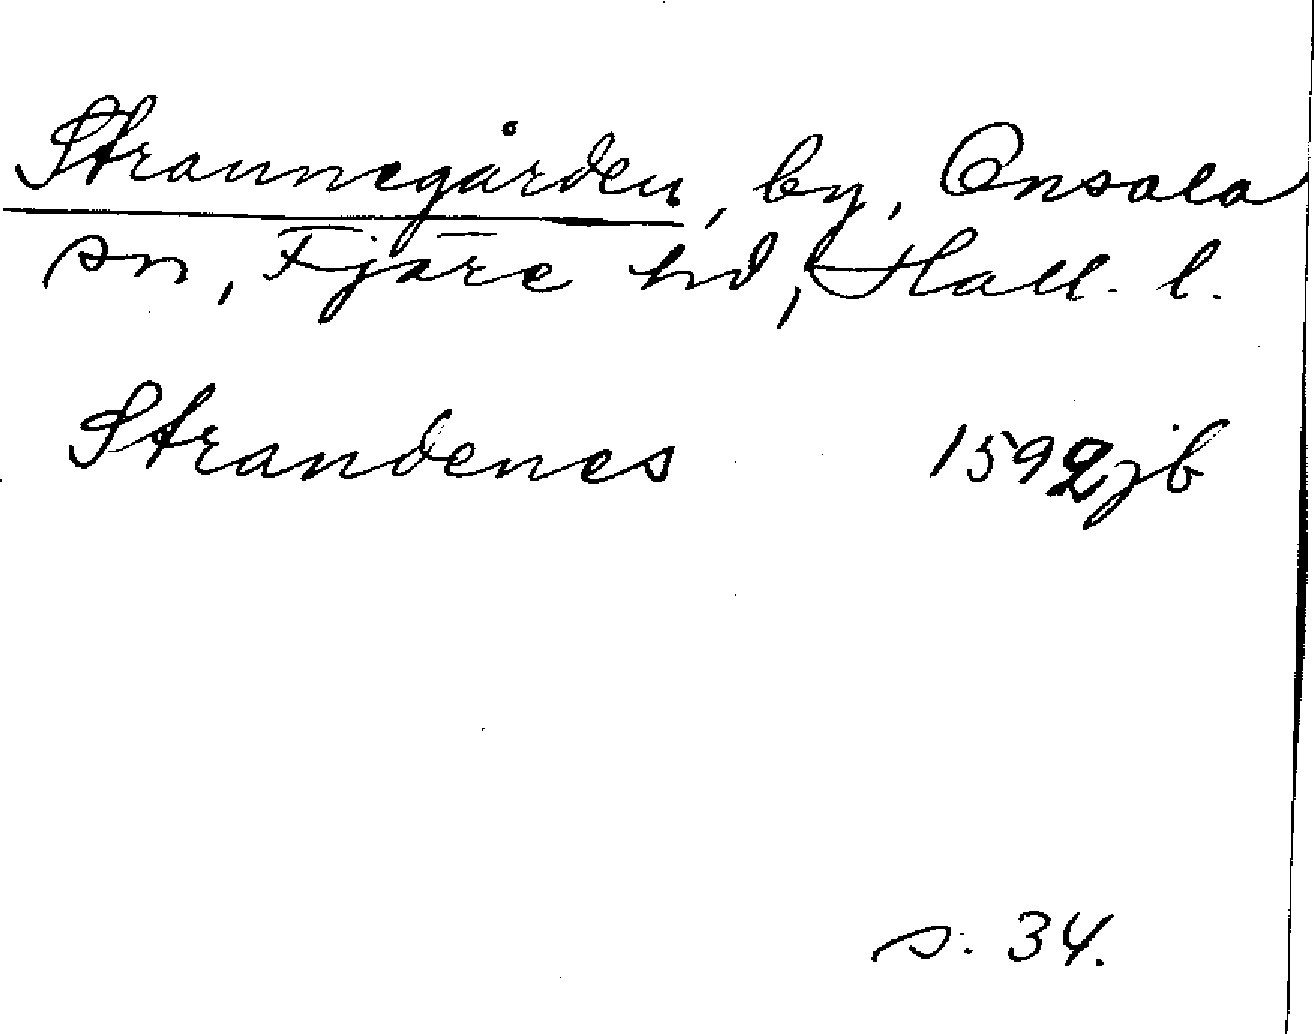 Strannegården, by, Onsala
sn, Fjäre hd, Hall. l.
Strandenes 1592 jb
s. 34.